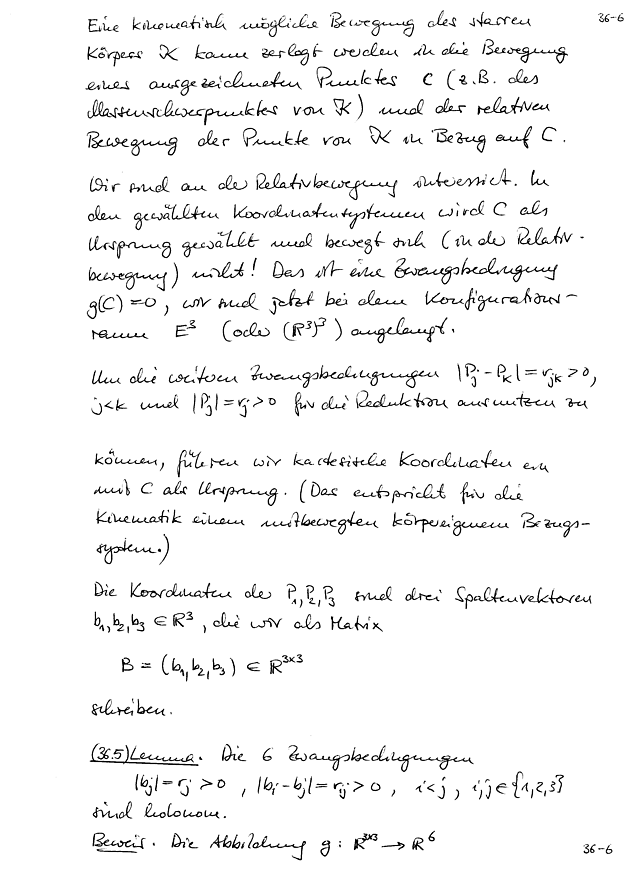 36-6
Eine kinematisch mögliche Bewegung des starren
Körpers K kann zerlegt werden in die Bewegung
eines ausgezeichneten Punktes C (z.B. des
Massenschwerpunktes von K) und der relativen
Bewegung der Punkte von K in Bezug auf C.
Wir sind an der Relativbewegung interessiert. In
den gewählten Koordinatensystemen wird C als
Ursprung gewählt und bewegt sich (in der Relativ-
bewegung) nicht! Das ist eine Zwangsbedingung
g(C)=0, wir sind jetzt bei dem Konfigurations-
raum E³ (oder (ℝ³)³) angelangt.
Um die weiteren Zwangsbedingungen |P_j - P_k| = r_jk > 0,
j<k und |P_j| = r_j > 0 für die Reduktion ausnutzen zu
können, führen wir kartesische Koordinaten ein
mit C als Ursprung. (Das entspricht für die
Kinematik einem mitbewegten körpereigenem Bezugs-
system.)
Die Koordinaten der P₁,P₂,P₃ sind drei Spaltenvektoren
b₁,b₂,b₃ ∈ ℝ³, die wir als Matrix
B = (b₁,b₂,b₃) ∈ ℝ³ˣ³
schreiben.
(36.5) Lemma. Die 6 Zwangsbedingungen
|b_j| = r_j > 0, |b_i - b_j| = r_ij > 0, i<j, i,j ∈ {1,2,3}
sind holonom.
Beweis. Die Abbildung g: ℝ³ˣ³ → ℝ⁶
36-6